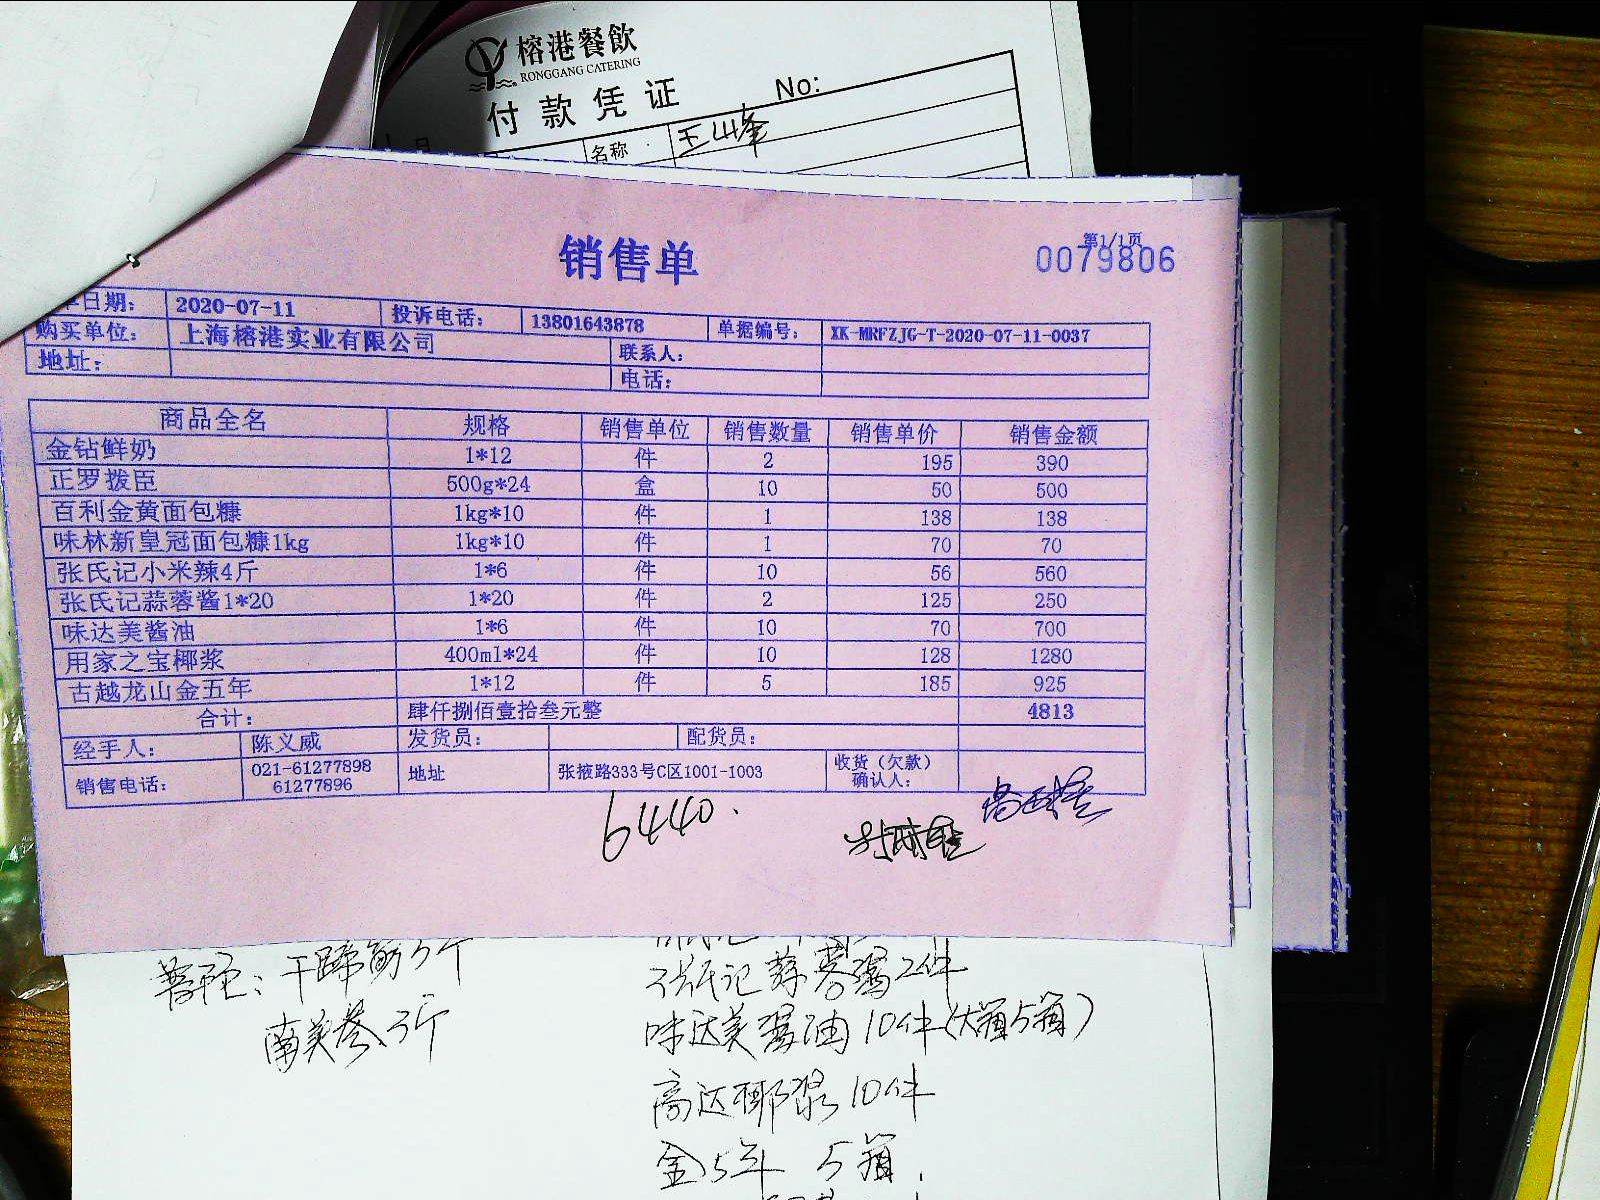 榕港餐飲
RONGGANG CATERING
付款凭证 No:
名称 王山峰
销售单
第1/1页
0079806
单日期: 2020-07-11 投诉电话: 13801643878 单据编号: XK-MRFZJG-T-2020-07-11-0037
购买单位: 上海榕港实业有限公司 联系人:
地址: 电话:
商品全名 规格 销售单位 销售数量 销售单价 销售金额
金钻鲜奶 1*12 件 2 195 390
正罗拨臣 500g*24 盒 10 50 500
百利金黄面包糠 1kg*10 件 1 138 138
味林新皇冠面包糠1kg 1kg*10 件 1 70 70
张氏记小米辣4斤 1*6 件 10 56 560
张氏记蒜蓉酱1*20 1*20 件 2 125 250
味达美酱油 1*6 件 10 70 700
用家之宝椰浆 400ml*24 件 10 128 1280
古越龙山金五年 1*12 件 5 185 925
合计: 肆仟捌佰壹拾叁元整 4813
经手人: 陈义威 发货员: 配货员:
销售电话: 021-61277898 61277896 地址 张掖路333号C区1001-1003 收货（欠款）确认人:
6440.
普陀: 干蹄筋5斤
南美参3斤
张氏记蒜蓉酱2件
味达美酱油10件(大箱5箱)
高达椰浆10件
金5年 5箱.